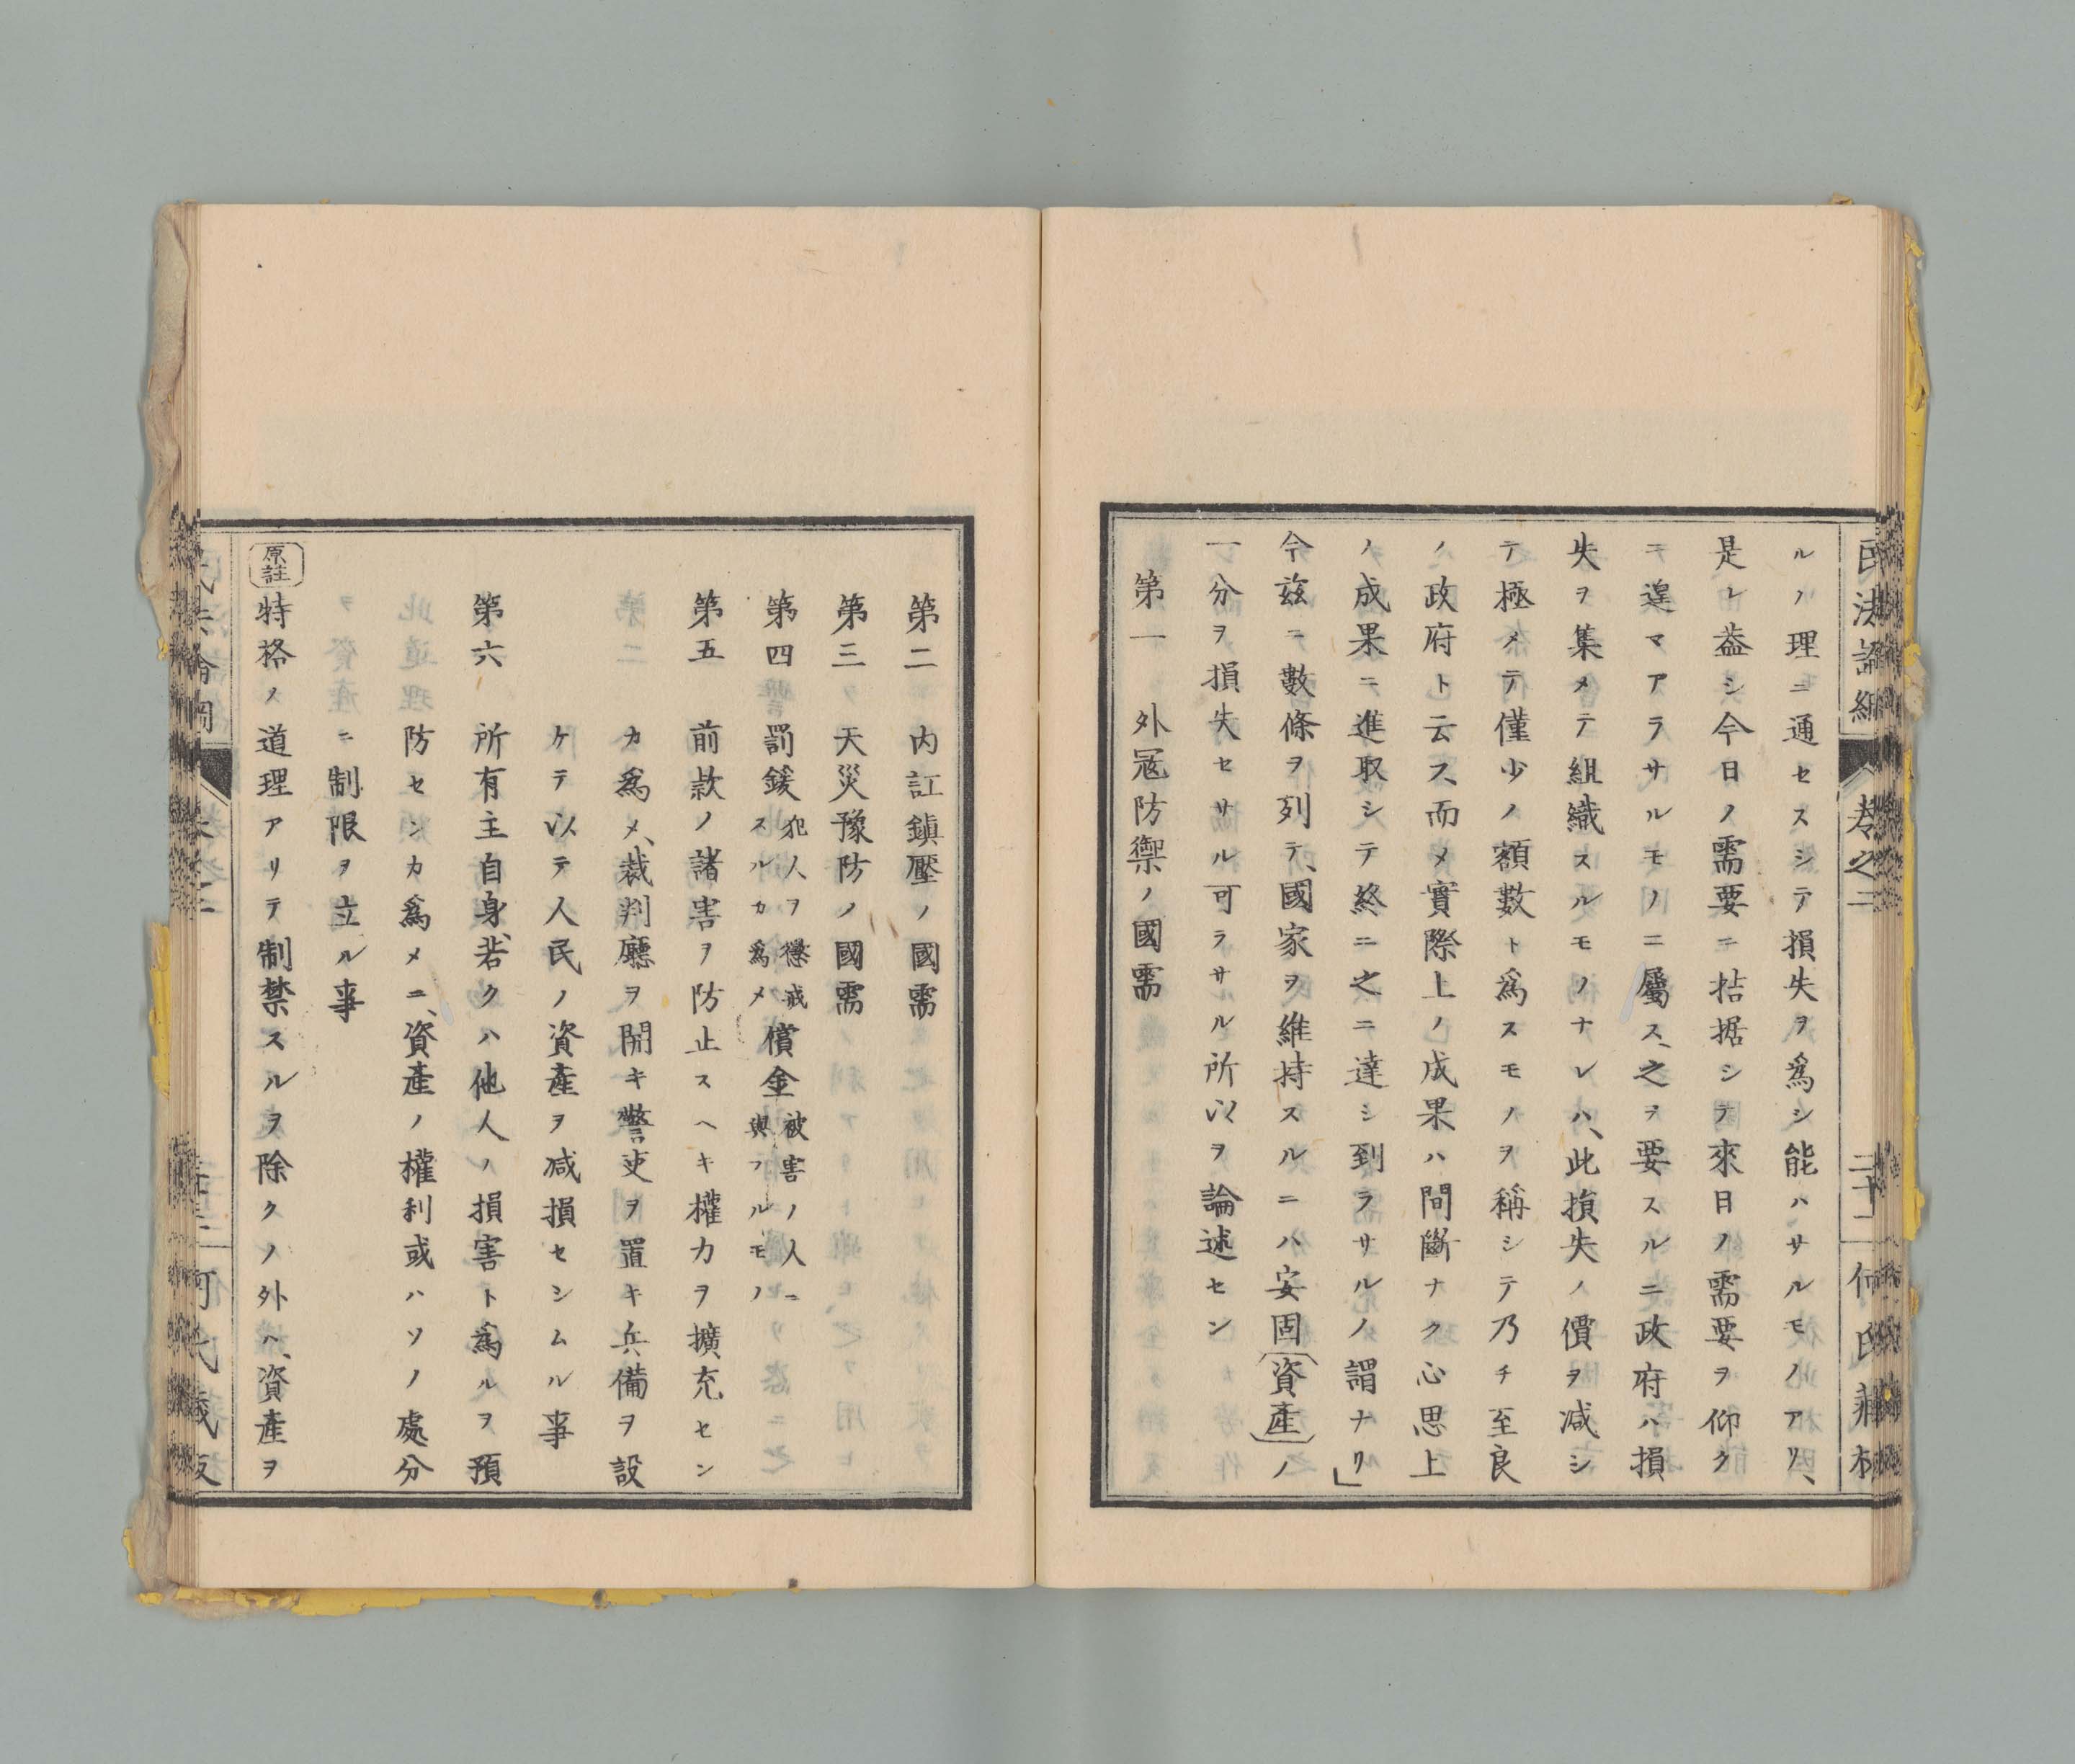 民法論綱 卷之二 二十二 何氏藏板
ルノ理ニ通セスシテ損失ヲ爲シ能ハサルモノアリ、
是レ葢シ今日ノ需要ニ拮据シテ來日ノ需要ヲ仰ク
ニ遑マアラサルモノニ屬ス、之ヲ要スルニ政府ハ損
失ヲ集メテ組織スルモノナレハ、此損失ノ價ヲ减シ
テ極メテ僅少ノ額數ト爲スモノヲ稱シテ乃チ至良
ノ政府ト云ス、而メ實際上ノ成果ハ間斷ナク心思上
ノ成果ニ進取シテ終ニ之ニ達シ到ラサルノ謂ナリ」
今玆ニ數條ヲ列テ、國家ヲ維持スルニハ安固(資產)ノ
一分ヲ損失セサル可ラサル所以ヲ論述セン
第一 外冦防禦ノ國需
第二 内訌鎭壓ノ國需
第三 天災豫防ノ國需
第四 罰鍰犯人ヲ懲戒スルカ爲メ償金被害ノ人ニ與フルモノ
第五 前款ノ諸害ヲ防止スヘキ權力ヲ擴充セン
カ爲メ、裁判廳ヲ開キ警吏ヲ置キ兵備ヲ設
ケテ以テ人民ノ資產ヲ减損セシムル事
第六 所有主自身、若クハ他人ノ損害ト爲ルヲ預
防センカ爲メニ、資產ノ權利或ハソノ處分
ニ制限ヲ立ル事
原註 特格ノ道理アリテ制禁スルヲ除クノ外ハ、資產ヲ